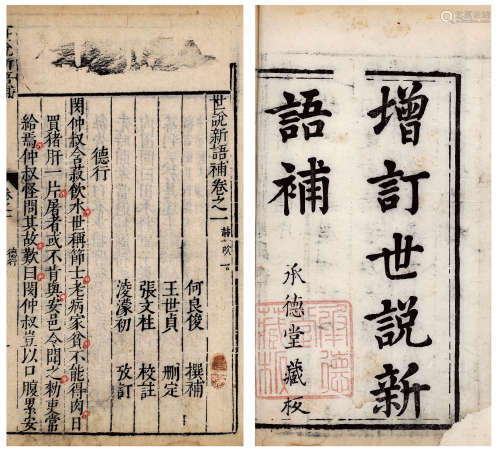 增訂世說新
語補
承德堂藏板
世說新語補卷之一
何良俊 撰補
王世貞 刪定
張文柱 校註
淩濛初 攷訂
德行
閔仲叔含菽飲水世稱節士老病家貧不能得肉日
買猪肝一片屠者或不肯與安邑令聞之勑吏常
給焉仲叔怪問其故歎曰閔仲叔豈以口腹累安
德行